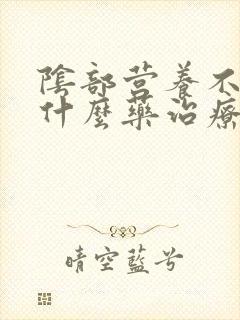 陰部营養不
什麼藥治療
晴空藍兮